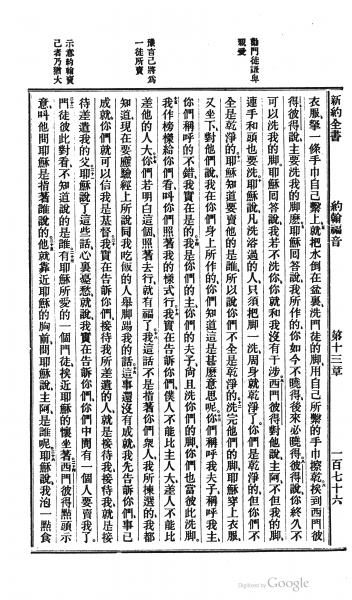 新約全書 約翰福音 第十三章 一百七十六
勸門徒謙卑
親愛
豫言己將為
一徒所賣
示意約翰賣
己者乃猶大
衣服擎一條手巾自己繫上就把水倒在盆裏洗門徒的脚用自己所繫的手巾擦乾挨到西門彼
得彼得說主要洗我的脚麽耶穌回答說我所作的你如今不曉得後來必曉得彼得說你終久不
可以洗我的脚耶穌回答說我若不洗你你就和我沒有干涉西門彼得對他說主阿不但我的脚
連手和頭也要洗耶穌說凡洗浴過的人只須把脚一洗周身就乾淨了你們是乾淨的但你們不
全是乾淨的耶穌知道要賣他的是誰所以說你們不全是乾淨的洗完他們的脚耶穌穿上衣服
又坐下對他們說我在你們身上所作的你們知道這是甚麽意思呢你們稱呼我夫子稱呼我主
你們稱呼的不錯我實在是的我是你們的主你們的夫子尚且洗你們的脚你們也當彼此洗脚
我作榜樣給你們看叫你們照著我的樣式行我實在告訴你們僕人不能比主人大差人不能比
差他的人大你們若明白這個照著去行就有福了我這話不是指著你們衆人我所揀選的我都
知道現在要應驗經上所說同我吃飯的人舉脚踢我的話這事還沒有成就我先告訴你們事已
成就你們就可以信我是基督我實在告訴你們接待我所差遣的人就是接待我接待我就是接
待差遣我的父耶穌說了這些話心裏憂愁就說我實在告訴你們你們中間有一個人要賣我了
門徒彼此對看不知道說的是誰有耶穌所愛的一個門徒挨近耶穌的懷坐著西門彼得點頭示
意叫他問耶穌是指著誰說的他就靠近耶穌的胸前問耶穌說主阿是誰呢耶穌說我泡一點食
Digitized by Google